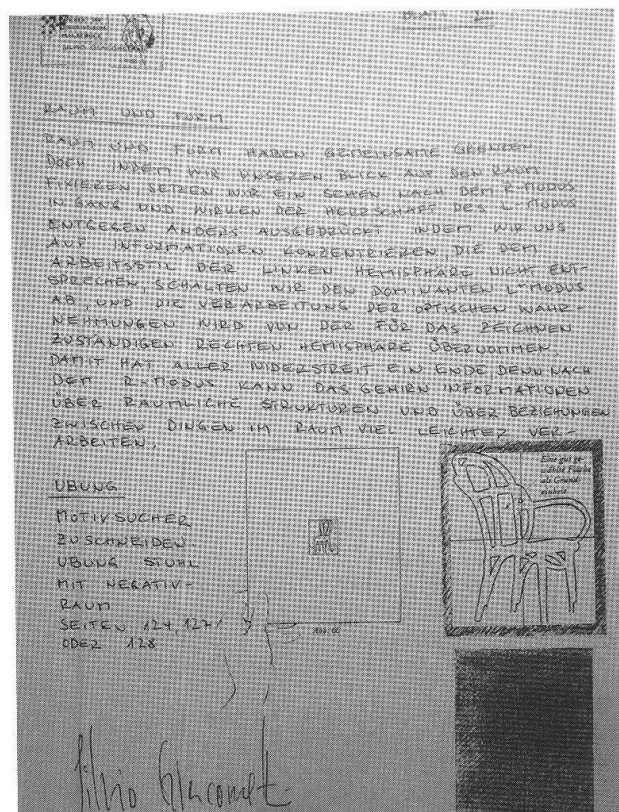 BLATT
RAUM UND FORM
RAUM UND FORM HABEN GEMEINSAME GRENZEN.
DOCH INDEM WIR UNSEREN BLICK AUF DEN RAUM
FIXIEREN, SETZEN WIR EIN SEHEN NACH DEM R-MODUS
IN GANG UND WIRKEN DER HERRSCHAFT DES L-MODUS
ENTGEGEN ANDERS AUSGEDRÜCKT INDEM WIR UNS
AUF INFORMATIONEN KONZENTRIEREN, DIE DEM
ARBEITSSTIL DER LINKEN HEMISPHÄRE NICHT ENT-
SPRECHEN, SCHALTEN WIR DEN DOMINANTEN L-MODUS
AB, UND DIE VERARBEITUNG DER OPTISCHEN WAHR-
NEHMUNGEN WIRD VON DER FÜR DAS ZEICHNEN
ZUSTÄNDIGEN RECHTEN HEMISPHÄRE ÜBERNOMMEN.
DAMIT HAT ALLER WIDERSTREIT EIN ENDE, DENN NACH
DEM R-MODUS KANN DAS GEHIRN INFORMATIONEN
ÜBER RÄUMLICHE STRUKTUREN UND ÜBER BEZIEHUNGEN
ZWISCHEN DINGEN IM RAUM VIEL LEICHTER VER-
ARBEITEN.
ÜBUNG
MOTIVSUCHER
ZUSCHNEIDEN
ÜBUNG STUHL
MIT NEGATIV-
RAUM
SEITEN 124, 127/
ODER 128
Abb. 66
Eine gut ge-
wählte Fläche
als Grund-
einheit
Silvio Giacomet